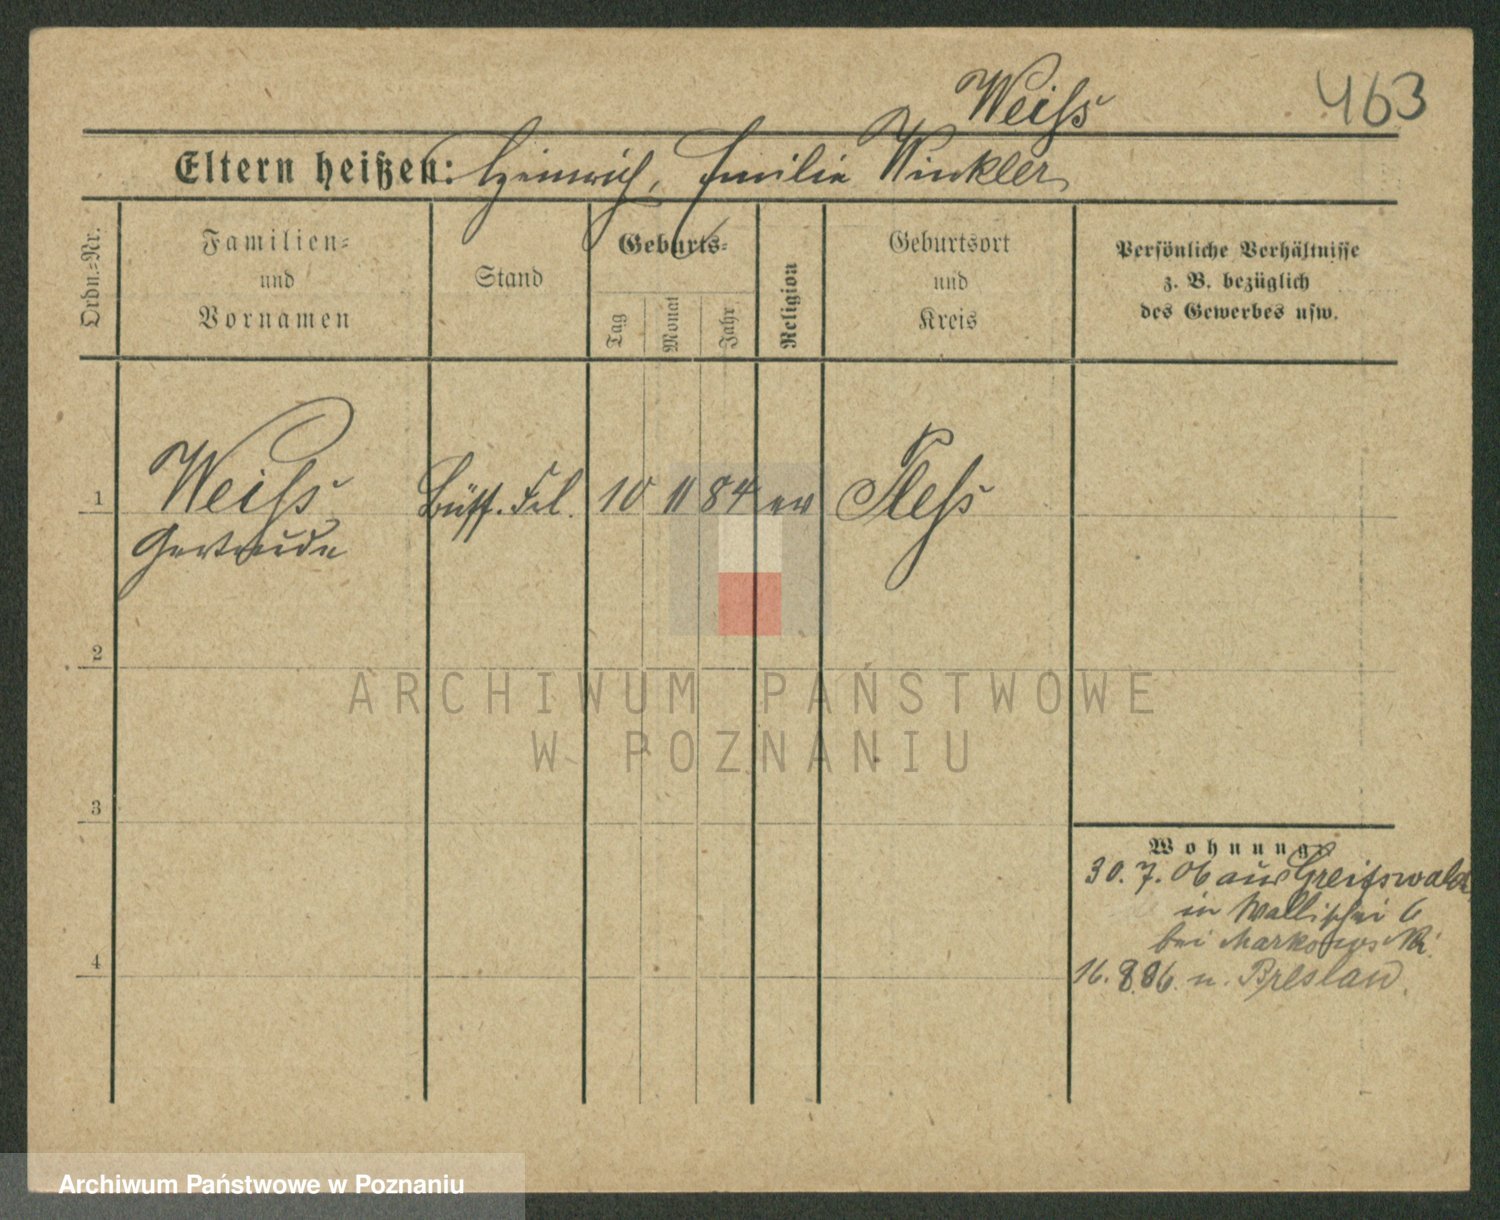 Weiss
463
Eltern heißen: Heinrich, Emilie Winkler
Ordn.=Nr.
Familien=
und
Vornamen
Stand
Geburts=
Tag
Monat
Jahr
Religion
Geburtsort
und
Kreis
Persönliche Verhältnisse
z. B. bezüglich
des Gewerbes usw.
1 Weiss Büff. Frl. 10 11 84 ev Pless
Gertrude
2
3
4
Wohnung:
30. 7. 06 aus Greifswald
in Wallischei 6
bei Markowski.
16. 8. 06. n. Breslau.
ARCHIWUM PAŃSTWOWE
W POZNANIU
Archiwum Państwowe w Poznaniu